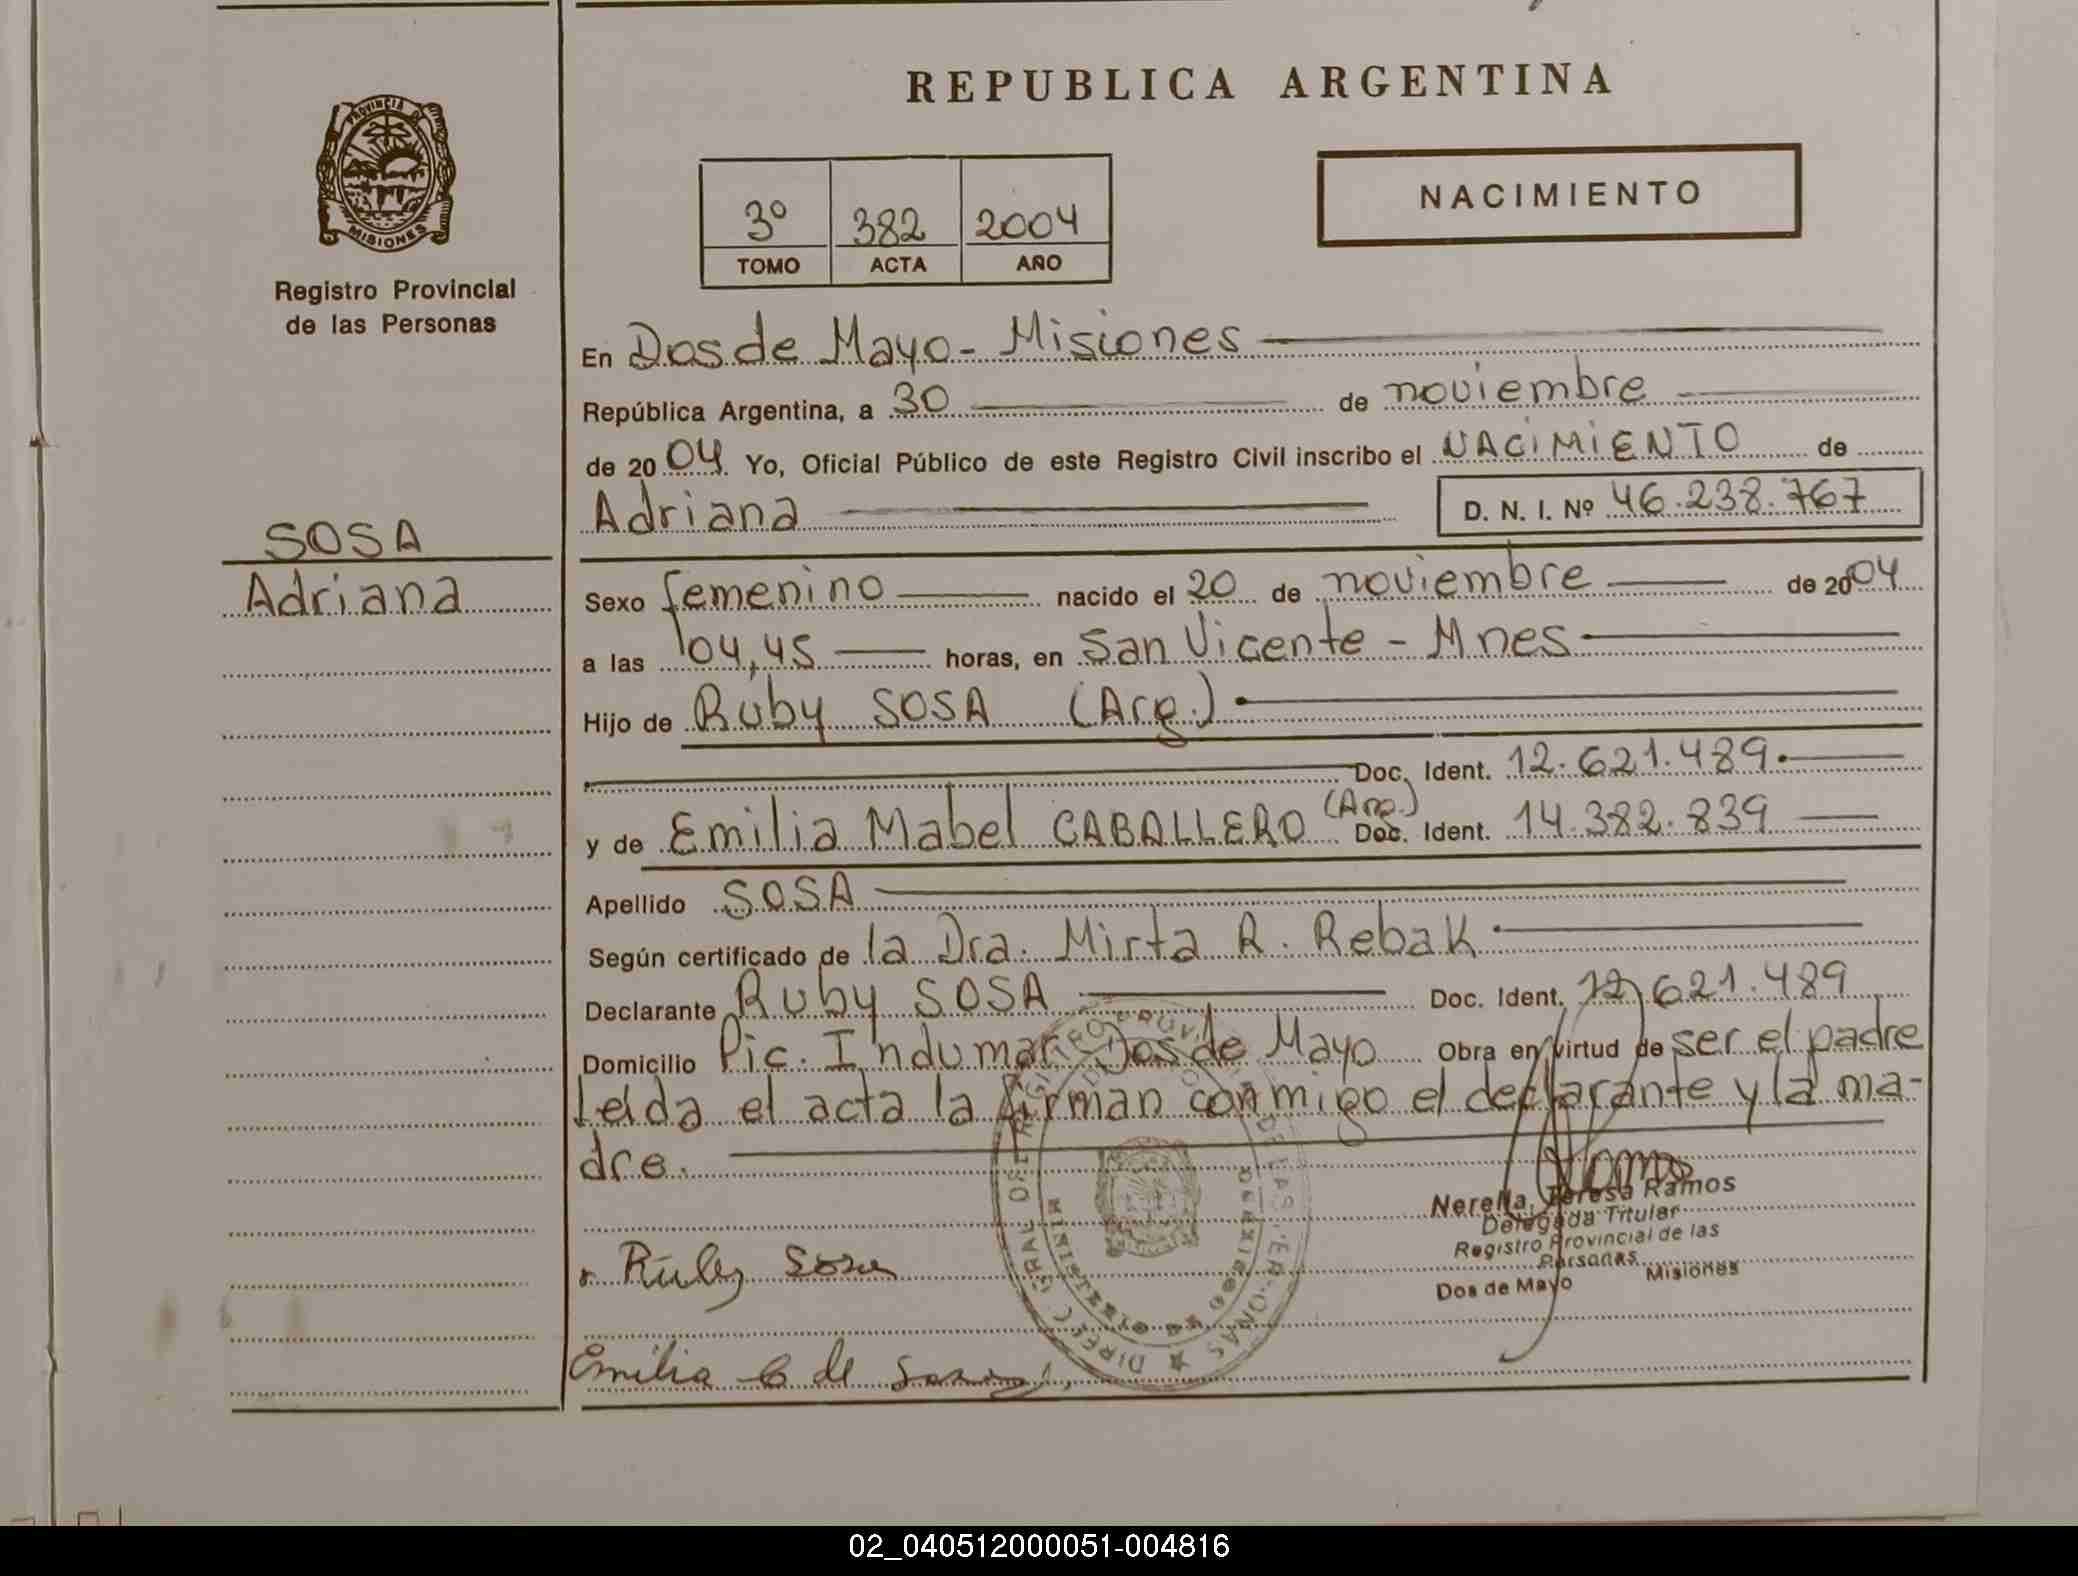 REPUBLICA ARGENTINA
PROVINCIA DE
MISIONES
Registro Provincial
de las Personas
NACIMIENTO
3º 382 2004
TOMO ACTA AÑO
En Dos de Mayo - Misiones
República Argentina, a 30 de noviembre
de 2004 Yo, Oficial Público de este Registro Civil inscribo el NACIMIENTO de
Adriana D. N. I. Nº 46.238.767
SOSA
Adriana
Sexo femenino nacido el 20 de noviembre de 2004
a las 04,45 horas, en San Vicente - Mnes
Hijo de Ruby SOSA (Arg.)
Doc. Ident. 12.621.489
y de Emilia Mabel CABALLERO (Arg.) Doc. Ident. 14.382.839
Apellido SOSA
Según certificado de la Dra. Mirta R. Rebak
Declarante Ruby SOSA Doc. Ident. 12.621.489
Domicilio Pic. Indumar Dos de Mayo Obra en virtud de ser el padre
Leída el acta la firman conmigo el declarante y la ma-
dre.
Nerella Teresa Ramos
Delegada Titular
Registro Provincial de las
Personas
Dos de Mayo Misiones
Ruby Sosa
Emilia C de Sosa
02_040512000051-004816